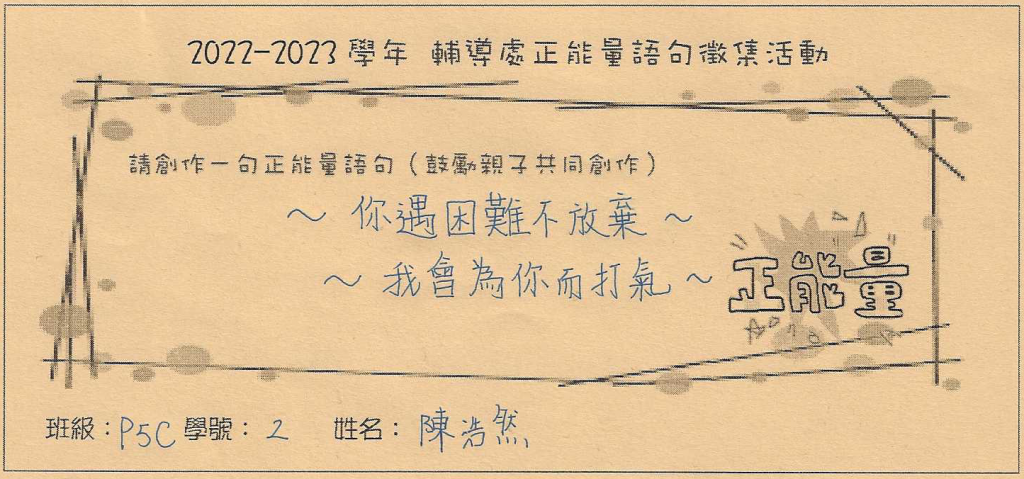 2022-2023學年 輔導處正能量語句徵集活動
請創作一句正能量語句（鼓勵親子共同創作）
～ 你遇困難不放棄 ～
～ 我會為你而打氣 ～
正能量
班級：P5C 學號：2 姓名：陳浩然